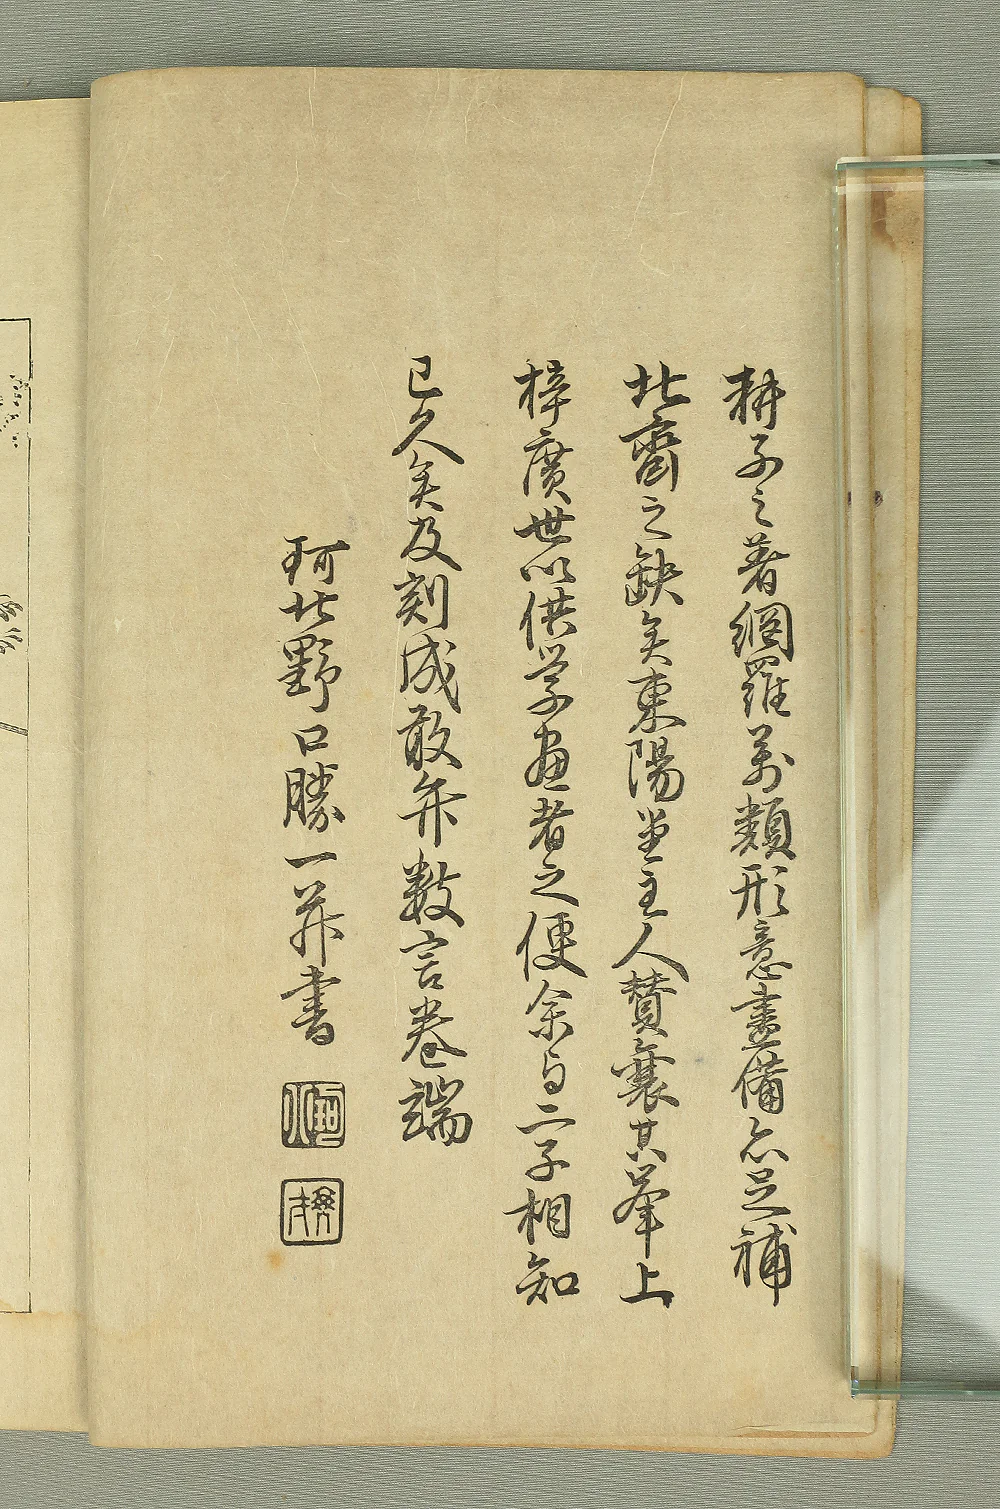 耕子之著網羅萬類形意盡備亦足補
北齋之缺矣東陽堂主人賛襄其挙上
梓廣世以供学画者之便余与二子相知
已久矣及刻成敢弁数言巻端
珂北野口勝一并書